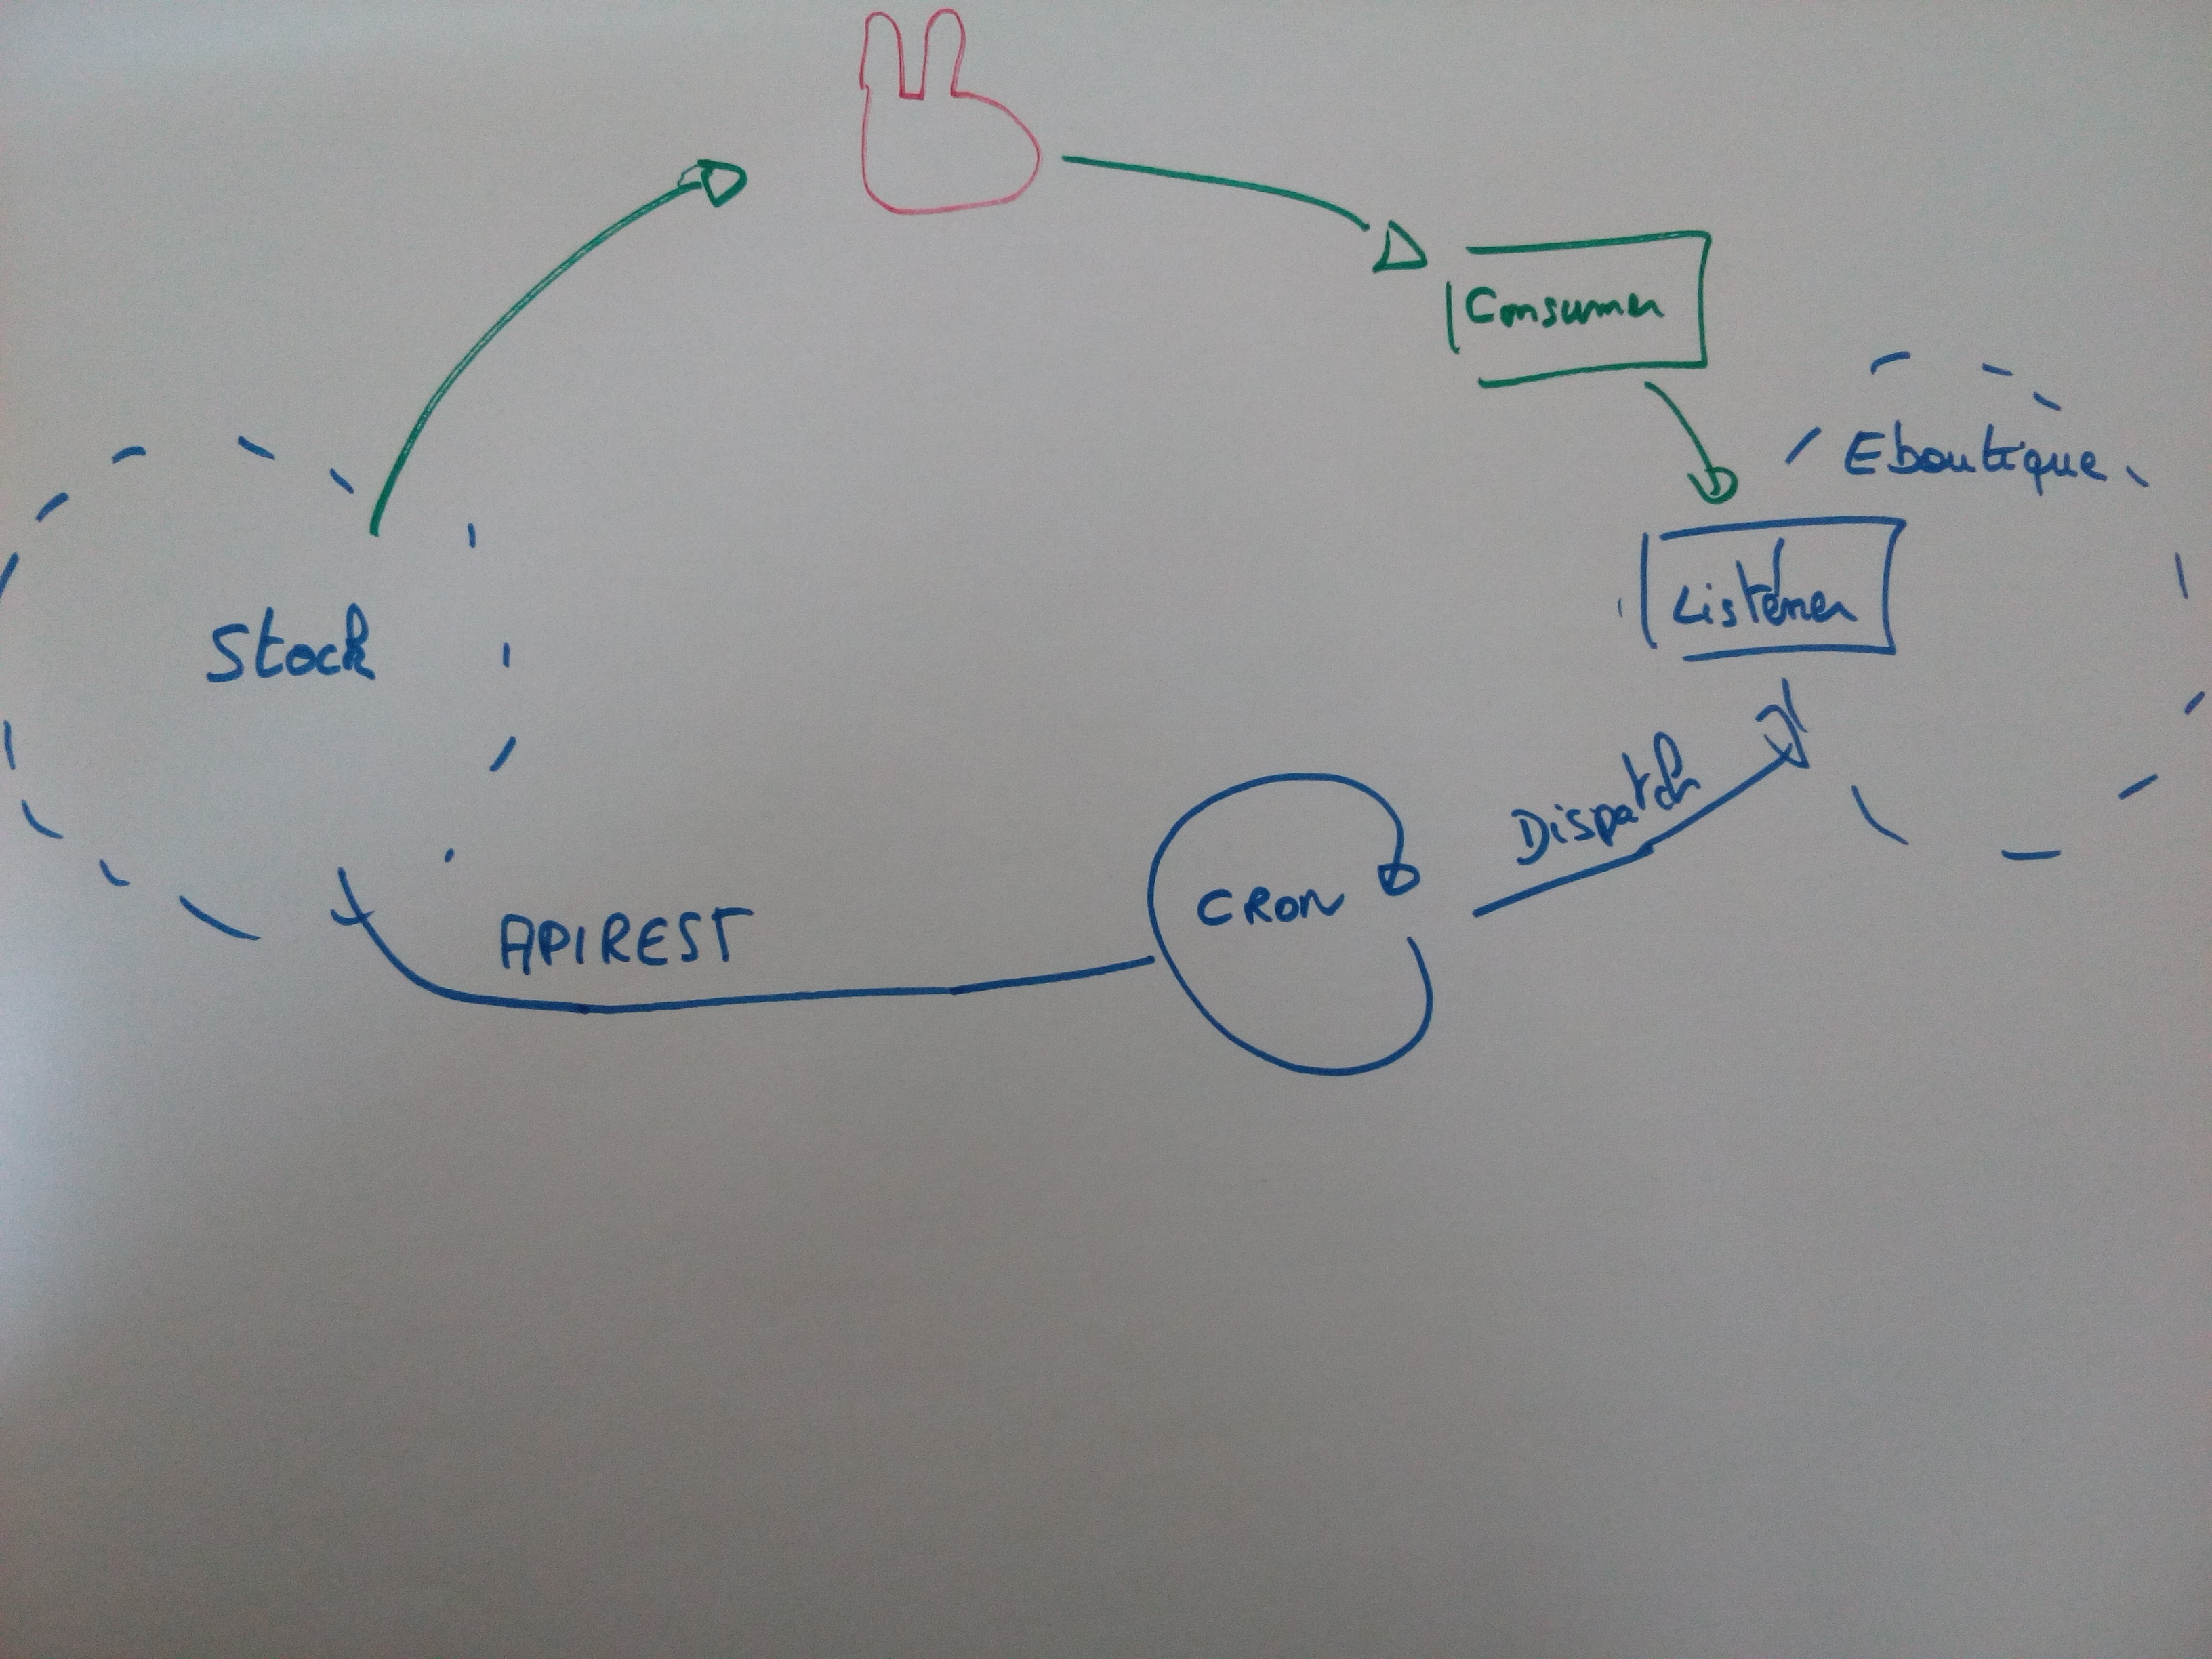 Consumer
Eboutique
Listener
Stock
Dispatch
CRON
APIREST